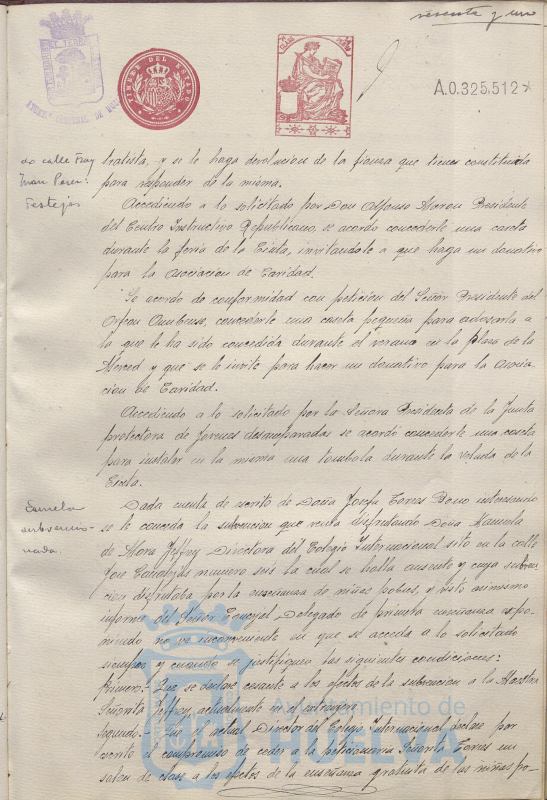 sesenta y uno
TIMBRE DEL ESTADO
A.0.325.512*
do calle Fray
Juan Perez:
Festejos
tratista, y se le haga devolucion de la fianza que tiene constituida
para responder de la misma.
Accediendo a lo solicitado por Don Alfonso Presidente
del Centro Instructivo Republicano, se acordo concederle una caseta
durante la feria de la Cinta, invitandole a que haga un donativo
para la Asociacion de Caridad.
Se acordo de conformidad con peticion del Señor Presidente del
Orfeon Onubense, concederle una caseta pequeña para adosarla a
la que le ha sido concedida durante el verano en la Plaza de la
Merced y que se le invite para hacer un donativo para la Asocia-
cion de Caridad.
Accediendo a lo solicitado por la Señora Presidenta de la Junta
protectora de Jovenes desamparadas se acordó concederle una caseta
para instalar en la misma una tombola durante la Velada de la
Cinta.
Escuela
subvencio-
nada.
Dada cuenta de escrito de Doña Josefa Torres Bono interesando
se le conceda la subvencion que venia disfrutando Doña Manuela
de Mora Jeffrey Directora del Colegio Internacional sito en la calle
Jose Canalejas numero seis la cual se halla ausente y cuya subven-
cion disfrutaba por la enseñanza de niñas pobres, y visto asimismo
informe del Señor Concejal Delegado de primera enseñanza expo-
niendo no ve inconveniente en que se acceda a lo solicitado
siempre y cuando se justifiquen las siguientes condiciones:
Primero.- Que se declare cesante a los efectos de la subvencion a la Maestra
Señorita Jeffrey, actualmente en el extranjero.
Segundo.- Que la actual Director del Colegio Internacional declare por
escrito el compromiso de ceder a la peticionaria Señorita Torres un
salon de clase a los efectos de la enseñanza gratuita de las niñas po-
Ayuntamiento de
HUELVA